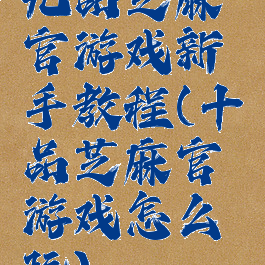 九品芝麻
官游戏新
手教程(十
品芝麻官
游戏怎么
玩)